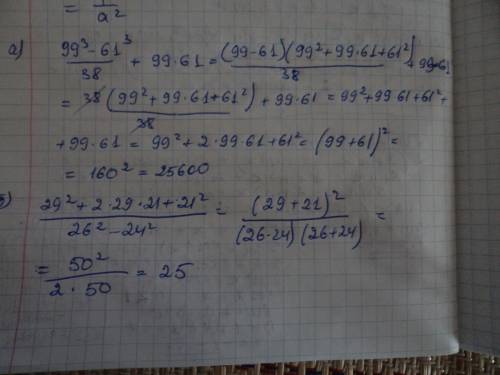 = 1/a²
a) (99³ - 61³)/38 + 99·61 = (99-61)(99²+99·61+61²)/38 + 99·61
= 38(99²+99·61+61²)/38 + 99·61 = 99²+99·61+61²+
+99·61 = 99²+2·99·61+61² = (99+61)² =
= 160² = 25600
б) (29²+2·29·21+21²)/(26²-24²) = (29+21)²/((26-24)(26+24)) =
= 50²/(2·50) = 25